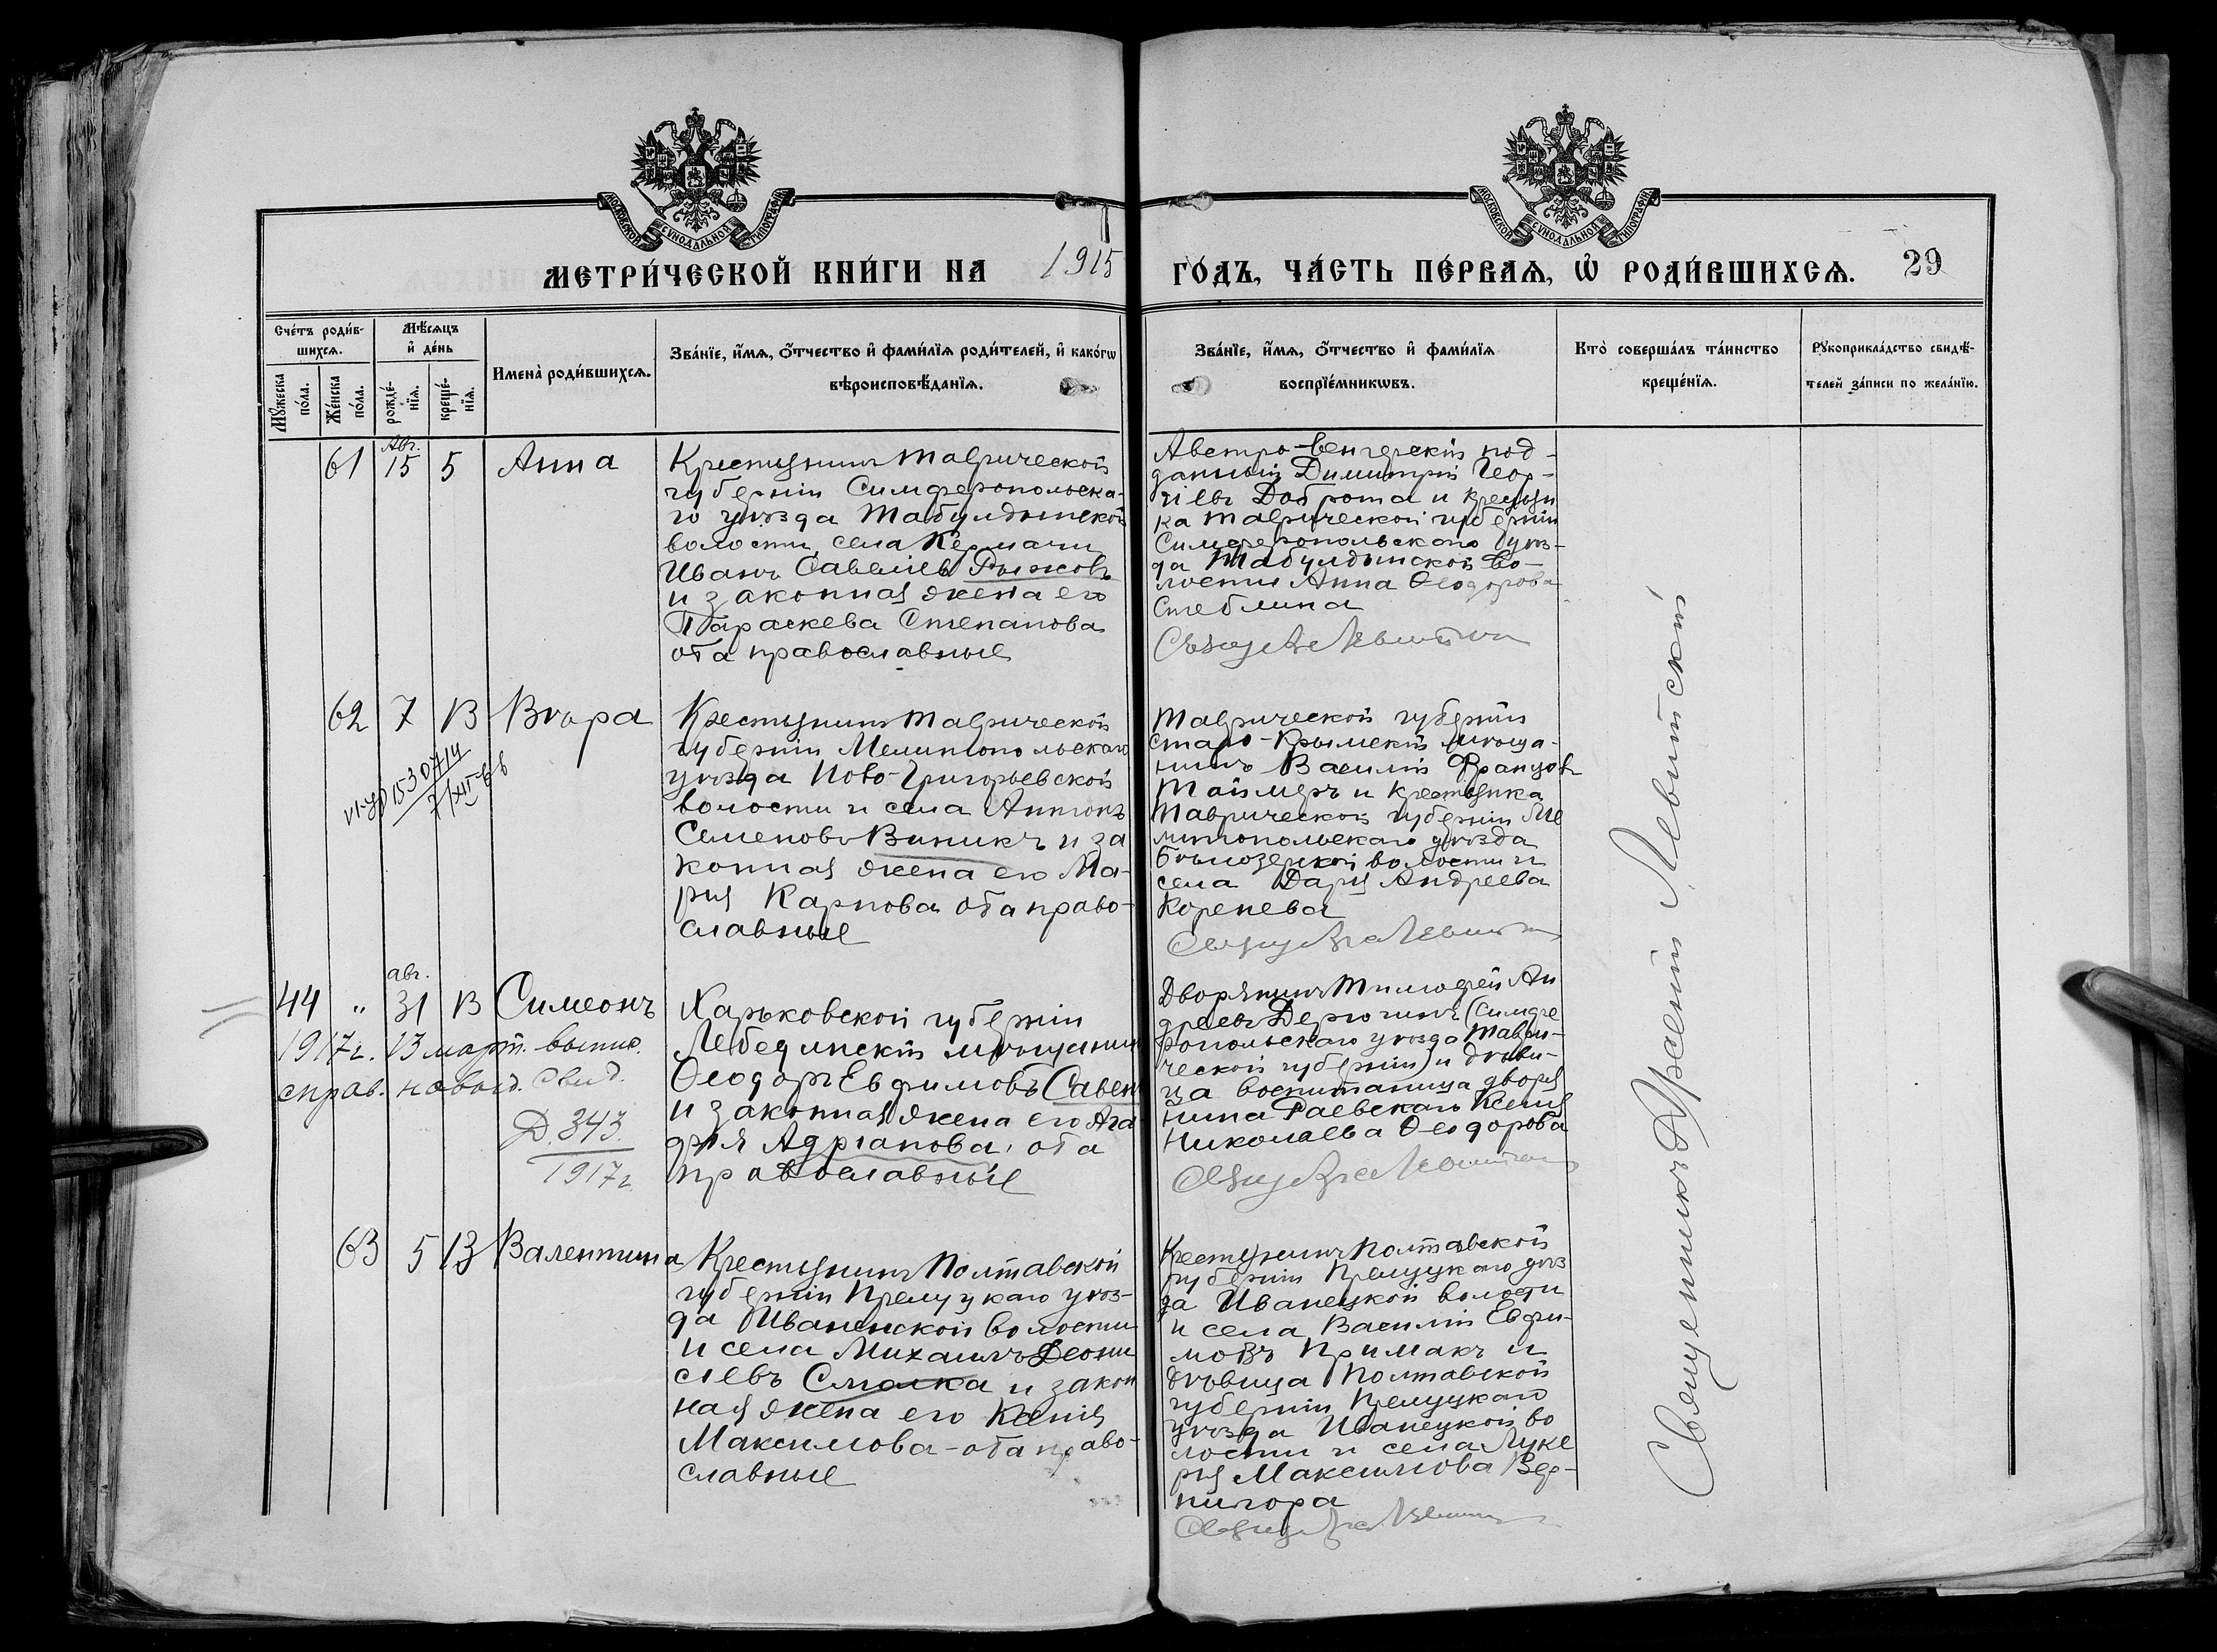 МОСКОВСКОЙ СѴНОДАЛЬНОЙ ТИПОГРАФІИ
МОСКОВСКОЙ СѴНОДАЛЬНОЙ ТИПОГРАФІИ
МЕТРИ́ЧЕСКОЙ КНИ́ГИ НА 1915 ГО́ДЪ, ЧА́СТЬ ПЕ́РВАѦ, Ѿ РОДИ́ВШИХСѦ. 29
Сче́тъ роди́в-
шихсѧ.
Мꙋ́жеска по́ла.
Же́нска по́ла.
Мѣ́сѧцъ
и҆ де́нь
рожде́-
нїѧ.
креще́-
нїѧ.
Имена̀ роди́вшихсѧ.
Зва́нїе, и҆́мѧ, ѻ҆́тчество и҆ фами́лїѧ роди́телей, и҆ како́гѡ
вѣроисповѣ́данїѧ.
Зва́нїе, и҆́мѧ, ѻ҆́тчество и҆ фами́лїѧ
воспрїе́мникѡвъ.
Кто̀ соверша́лъ та́инство
креще́нїѧ.
Рꙋкоприкла́дство свидѣ́-
телей за́писи по жела́нїю.
61 Авг. 15 5 Анна
Крестьянинъ Таврической
губерніи Симферопольска-
го уѣзда Табулдынской
волости, села Кермачи
Иванъ Савельевъ Рыжовъ
и законная жена его
Параскева Степанова
оба православные
Австро-Венгерскій под-
данный Димитрій Геор-
гіевъ Доброта и крестьян
ка Таврической губерніи
Симферопольскаго уѣз-
да Табулдынской во-
лости Анна Ѳеодорова
Стеблина
62 7 13 Вѣра
Крестьянинъ Таврической
губерніи Мелитопольскаго
уѣзда Ново-Григорьевской
волости и села Антонъ
Семеновъ Виникъ и за
конная жена его Ма-
рія Карпова оба право-
славные
Таврической губерніи
Старо-Крымскій мѣща-
нинъ Василій Францовъ
Таймеръ и крестьянка
Таврической губерніи Ме
литопольскаго уѣзда
Бѣлозерской волости и
села Дарія Андреева
Коренева
44 „ авг. 31 13 Симеонъ
1917 г. 13 март. выдано
справ. на
свид.
Д. 343.
1917 г.
Харьковской губерніи
Лебединскій мѣщанинъ
Ѳеодоръ Евфимовъ Савен
и законная жена его Ага
фія Адріанова, оба
православные
Дворянинъ Тимофей Ан
дреевъ Дерюгинъ (Симфе
ропольскаго уѣзда Таври-
ческой губерніи) и дѣви-
ца воспитанница дворя
нина Раевскаго Ксенія
Николаева Ѳеодорова
63 5 13 Валентина
Крестьянинъ Полтавской
губерніи Прилуцкаго уѣз-
да Иваницкой волости
и села Михаилъ Деони
сіевъ Смалка и закон
ная жена его Ксенія
Максимова - оба право-
славные
Крестьянинъ Полтавской
губерніи Прилуцкаго уѣз
да Иванецкой волости
и села Василій Евфи-
мовъ Примакъ и
дѣвица Полтавской
губерніи Прилуцкаго
уѣзда Иванецкой во
лости и села Луке
рія Максимова Вер-
нигора
Священникъ Арсеній Левитскій